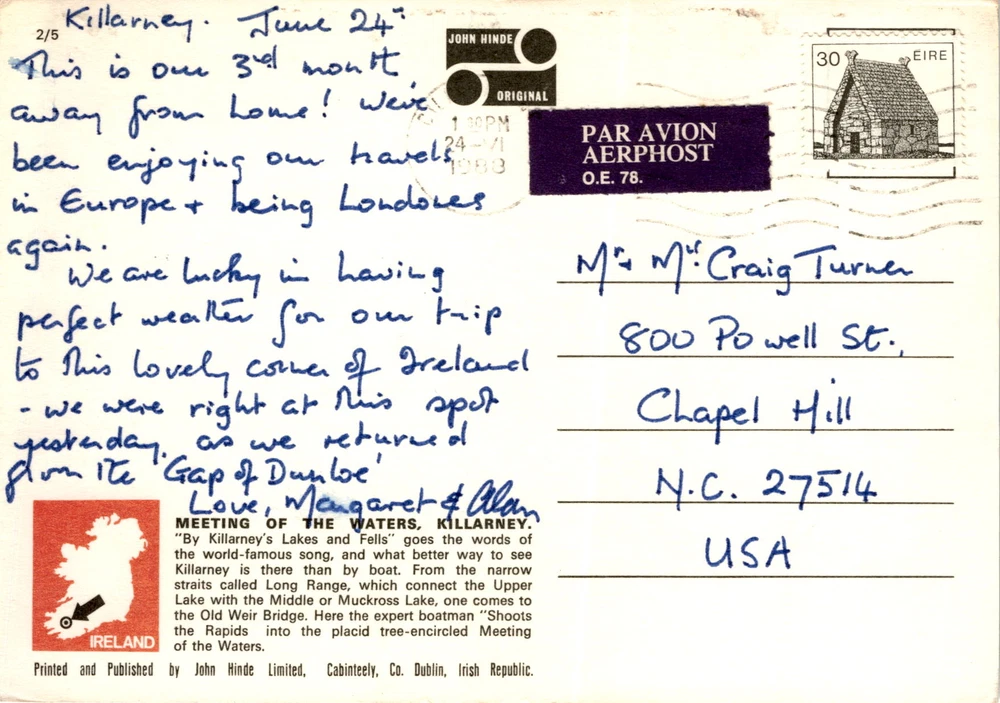 2/5
Killarney. June 24th
This is our 3rd month
away from home! We've
been enjoying our travels
in Europe + being Londoners
again.
We are lucky in having
perfect weather for our trip
to this lovely corner of Ireland
- we were right at this spot
yesterday, as we returned
from the 'Gap of Dunloe'
Love, Margaret & Alan
JOHN HINDE
ORIGINAL
PM
24-VI
PAR AVION
AERPHOST
O.E. 78.
30 ÉIRE
Mr + Mrs. Craig Turner
800 Powell St.,
Chapel Hill
N.C. 27514
USA
IRELAND
MEETING OF THE WATERS, KILLARNEY.
"By Killarney's Lakes and Fells" goes the words of
the world-famous song, and what better way to see
Killarney is there than by boat. From the narrow
straits called Long Range, which connect the Upper
Lake with the Middle or Muckross Lake, one comes to
the Old Weir Bridge. Here the expert boatman "Shoots
the Rapids into the placid tree-encircled Meeting
of the Waters.
Printed and Published by John Hinde Limited, Cabinteely, Co. Dublin, Irish Republic.